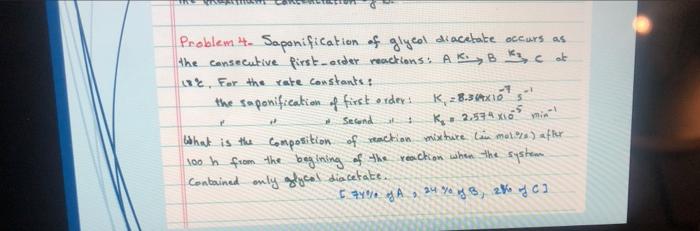 Problem 4- Saponification of glycol diacetate occurs as
the consecutive first-order reactions: A K₁→ B K₂→ C at
18℃. For the rate constants:
the saponification of first order: K₁ = 8.364x10⁻⁷ s⁻¹
" " " second " : K₂ = 2.574 x10⁻⁵ min⁻¹
What is the composition of reaction mixture (in mol%) after
100 h from the begining of the reaction when the system
contained only glycol diacetate.
[ 74% of A, 24 % of B, 2% of C ]